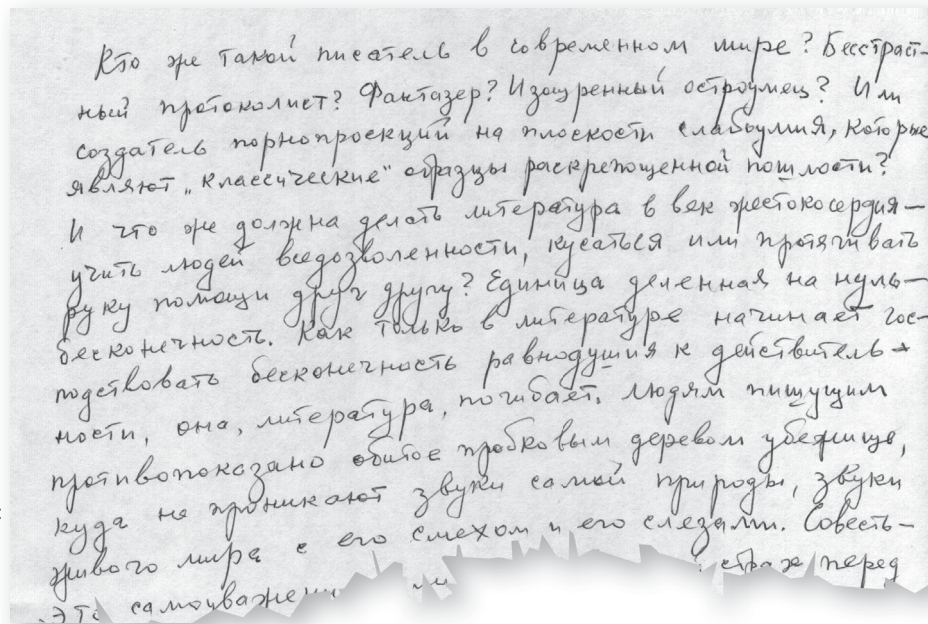 Кто же такой писатель в современном мире? Бесстраст-
ный протоколист? Фантазер? Изощренный остроумец? Или
создатель порнопроекций на плоскости слабоумия, которые
являют „классические" образцы раскрепощенной пошлости?
И что же должна делать литература в век жестокосердия –
учить людей вседозволенности, кусаться или протягивать
руку помощи друг другу? Единица деленная на нуль –
бесконечность. Как только в литературе начинает гос-
подствовать бесконечность равнодушия к действитель-
ности, она, литература, погибает. Людям пишущим
противопоказано обитое пробковым деревом убежище,
куда не проникают звуки самой природы, звуки
живого мира с его смехом и его слезами. Совесть –
это страх перед